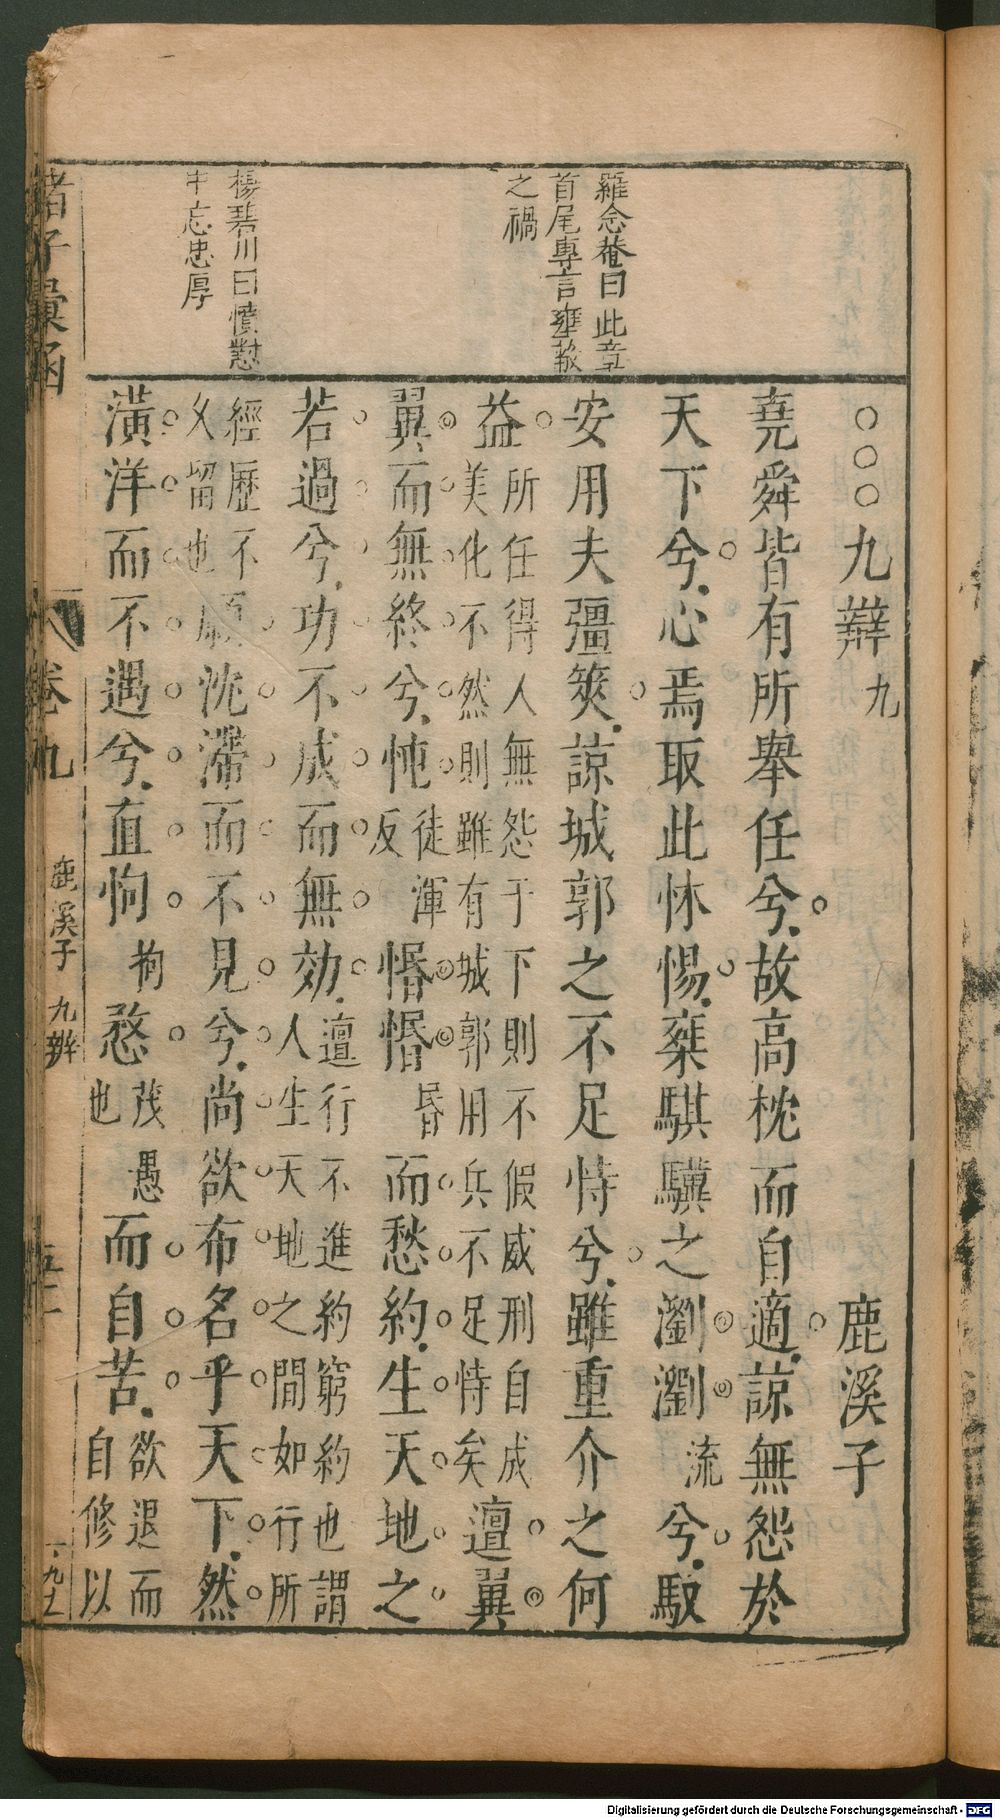 羅念菴曰此章
首尾專言壅蔽
之禍
楊碧川曰憤懟
中忘忠厚
○○○九辯九　鹿溪子
堯舜皆有所舉任兮故高枕而自適諒無怨於
天下兮心焉取此怵惕椉騏驥之瀏瀏流兮馭
安用夫彊筴諒城郭之不足恃兮雖重介之何
益所任得人無怨于下則不假威刑自成美化不然則雖有城郭用兵不足恃矣邅翼
翼而無終兮忳徒渾反惛惛昬而愁約生天地之
若過兮功不成而無効邅行不進約窮約也謂人生天地之間如行所
經歷不久留也願沈滯而不見兮尚欲布名乎天下然
潢洋而不遇兮直怐拘愗茂愚也而自苦欲退而自修以
諸子彙函
卷九
鹿溪子　九辯
五二